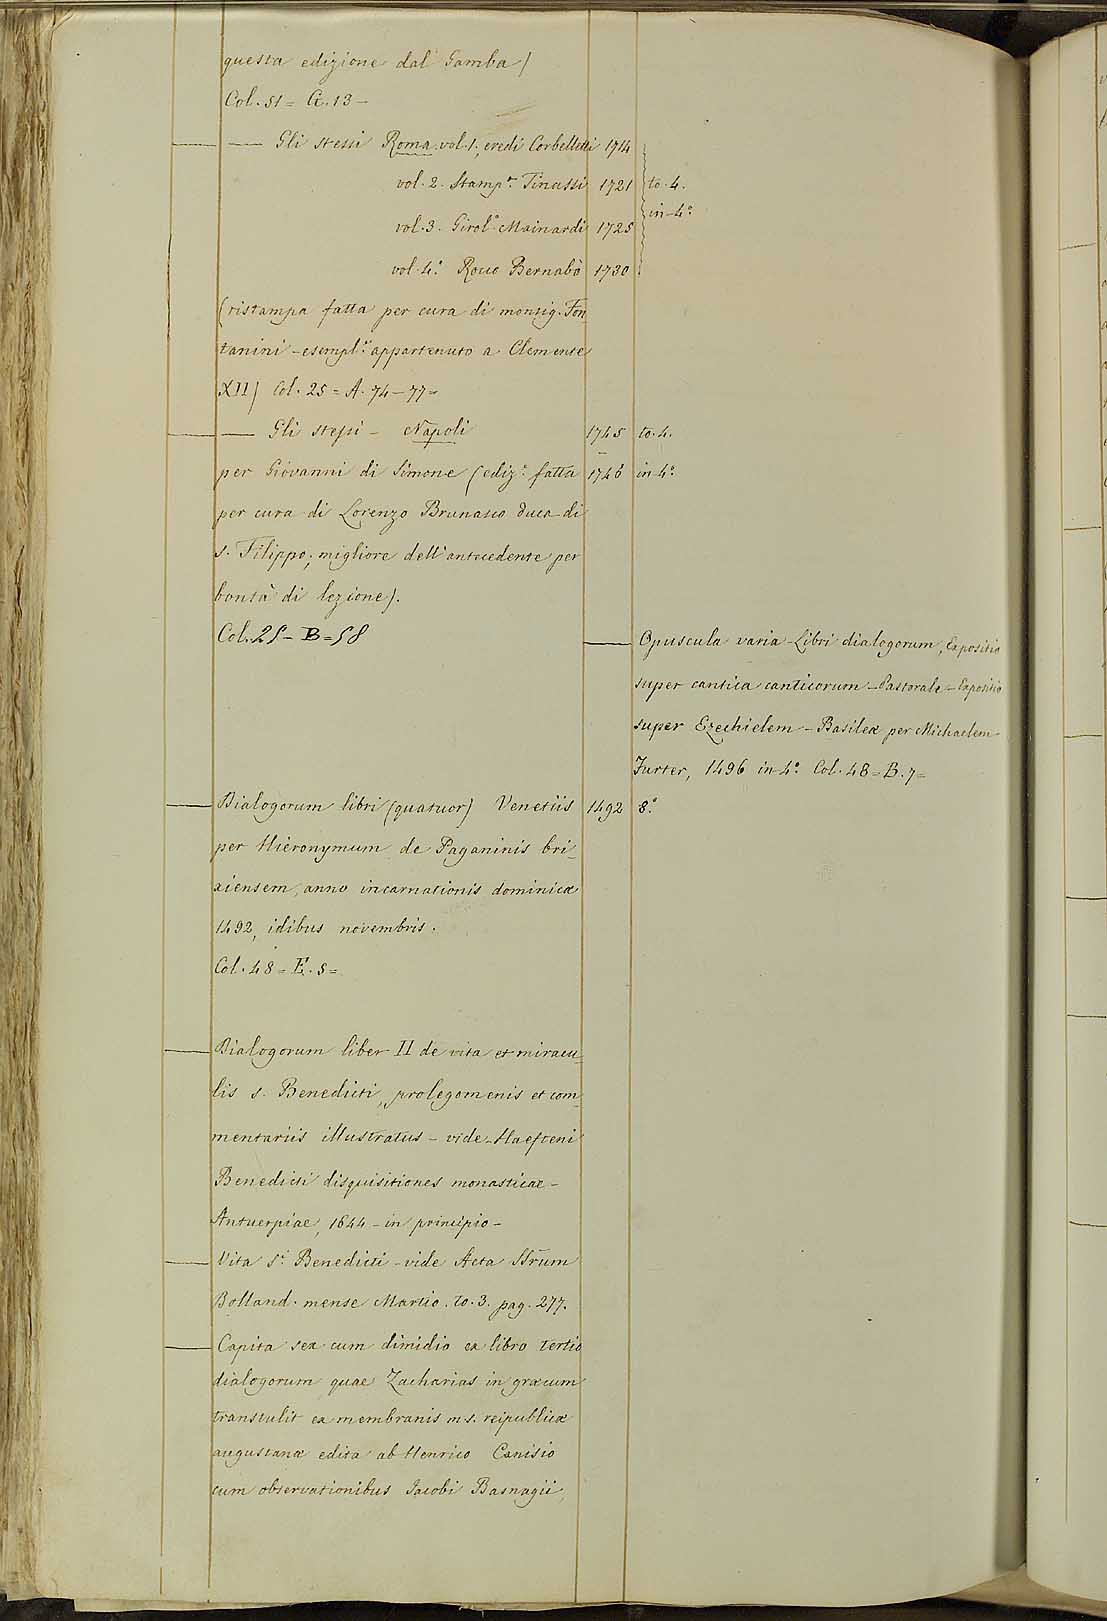 questa edizione dal Gamba)
Col. 51 = G. 13 —
— Gli stessi Roma vol. 1. eredi Corbelletti 1714
vol. 2. Stamp.ª Tinassi 1721 to. 4.
in 4.º
vol. 3. Girol.º Mainardi 1725
vol. 4.º Rocco Bernabò 1730
(ristampa fatta per cura di monsig. Fon_
tanini – esempl.e appartenuto a Clemente
XII) Col. 25 = A. 74 – 77 =
— Gli stessi – Napoli 1745 to. 4.
per Giovanni di Simone (ediz.e fatta 1746 in 4.º
per cura di Lorenzo Brunasso duca di
s. Filippo; migliore dell'antecedente per
bontà di lezione).
Col. 25 – B = 58
— Opuscula varia – Libri dialogorum, Expositio
super cantica canticorum – Pastorale – Expositio
super Ezechielem – Basileæ per Michaelem
Furter, 1496 in 4.º Col. 48 = B. 7 =
— Dialogorum libri (quatuor) Venetiis 1492 8.º
per Hieronymum de Paganinis bri_
xiensem, anno incarnationis dominicæ
1492, idibus novembris.
Col. 48 = E. 5 =
— Dialogorum liber II de vita et miracu_
lis s. Benedicti, prolegomenis et com_
mentariis illustratus – vide Haefteni
Benedicti disquisitiones monasticae –
Antuerpiae, 1644 – in principio –
— Vita S.i Benedicti – vide Acta SSrum
Bolland. mense Martio. to. 3. pag. 277.
— Capita sex cum dimidio ex libro tertio
dialogorum quae Zacharias in græcum
transtulit ex membranis ms. reipublicæ
augustanæ edita ab Henrico Canisio
cum observationibus Jacobi Basnagii,